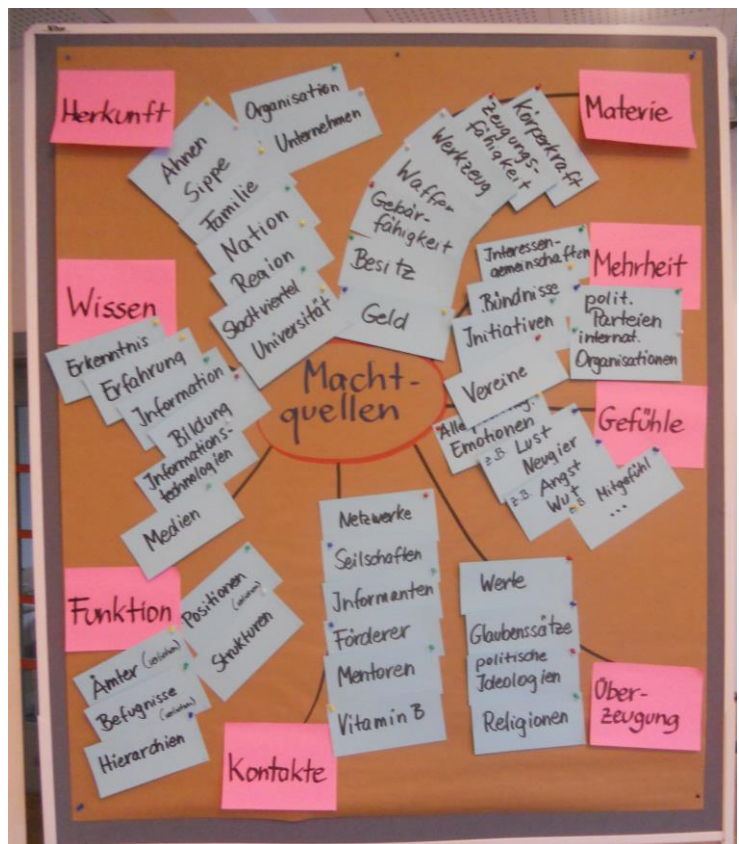 Macht-
quellen
Herkunft
Organisation
Unternehmen
Ahnen
Sippe
Familie
Nation
Region
Stadtviertel
Universität
Materie
Körperkraft
Zeugungs-
fähigkeit
Werkzeug
Waffen
Gebär-
fähigkeit
Besitz
Geld
Mehrheit
Interessen-
gemeinschaften
Bündnisse
Initiativen
Vereine
polit.
Parteien
internat.
Organisationen
Wissen
Erkenntnis
Erfahrung
Information
Bildung
Informations-
technologien
Medien
Gefühle
Alle
Emotionen
z.B. Lust
Neugier
z.B. Angst
Wut
z.B. Mitgefühl
...
Funktion
Positionen
Strukturen
Ämter
Befugnisse
Hierarchien
Kontakte
Netzwerke
Seilschaften
Informanten
Förderer
Mentoren
Vitamin B
Über-
zeugung
Werte
Glaubenssätze
politische
Ideologien
Religionen